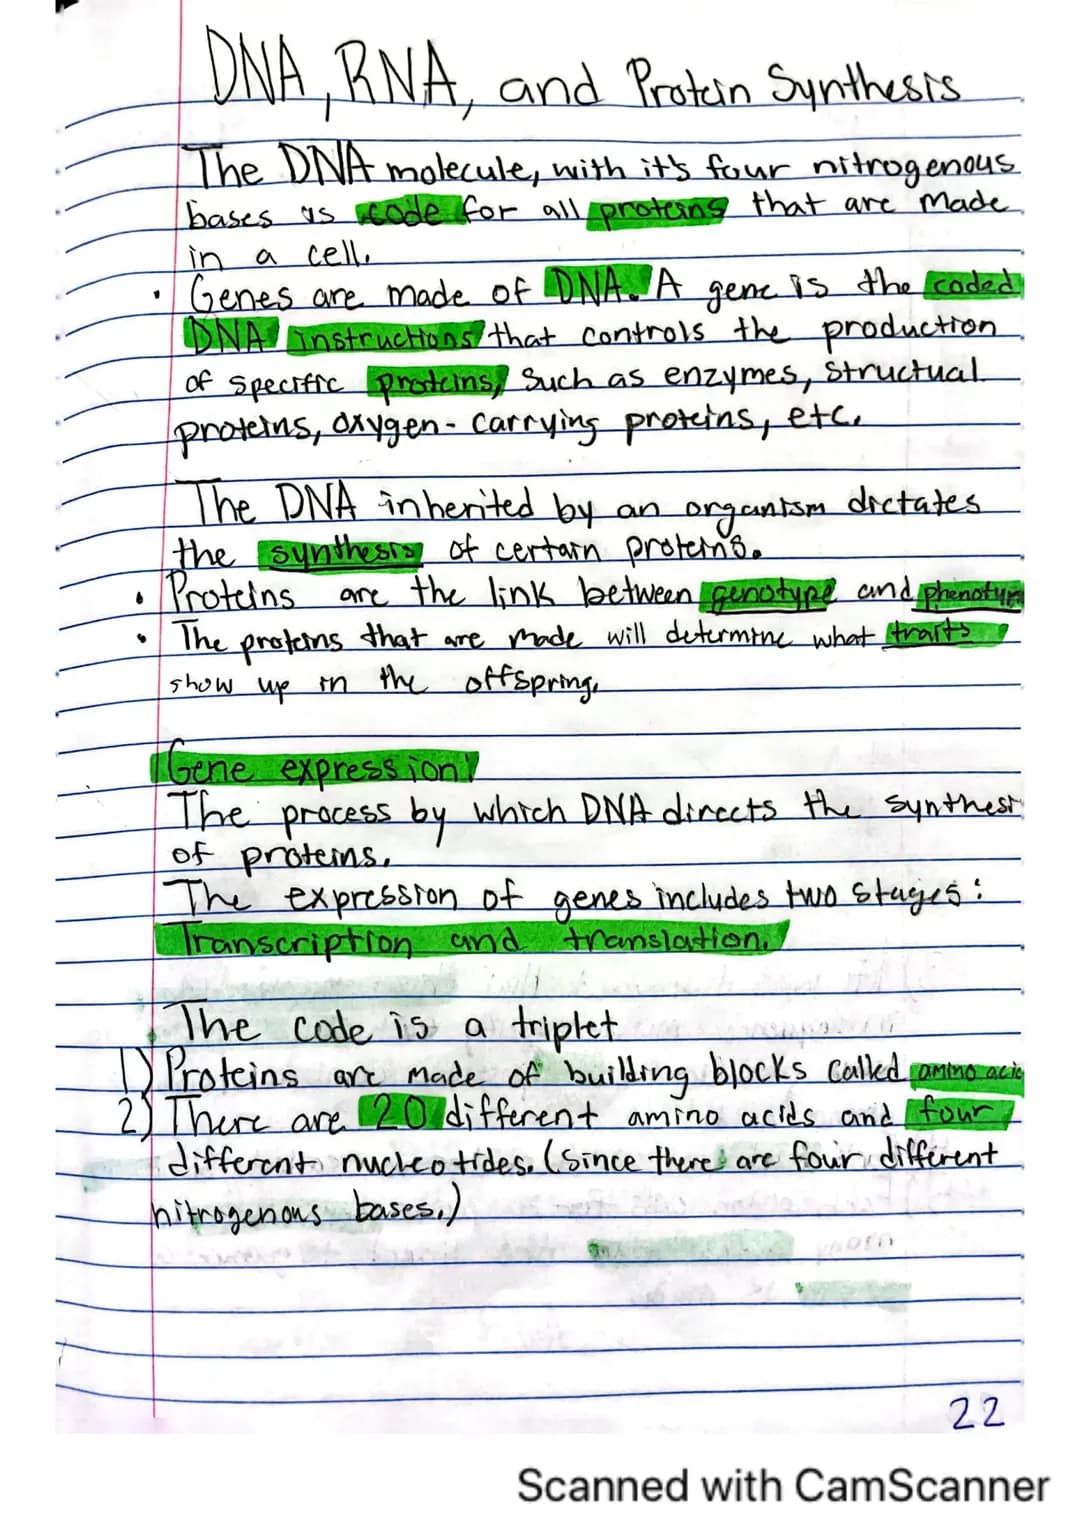 DNA, RNA, and Protein Synthesis
The DNA molecule, with it's four nitrogenous
bases is code for all proteins that are made
in a cell.
• Genes are made of DNA. A gene is the coded
DNA instructions that controls the production
of specific proteins, such as enzymes, structual
proteins, oxygen-carrying proteins, etc.
The DNA inherited by an organism dictates
the synthesis of certain proteins.
• Proteins are the link between genotype and phenotyp
• The proteins that are made will determine what traits
show up in the offspring.
Gene expression!
The process by which DNA directs the synthesi
of proteins.
The expression of genes includes two stages:
Transcription and translation.
The code is a triplet
1) Proteins are made of building blocks called amino acid
2) There are 20 different amino acids and four
different nucleotides. (Since there are four different
nitrogenous bases.)
22
Scanned with CamScanner